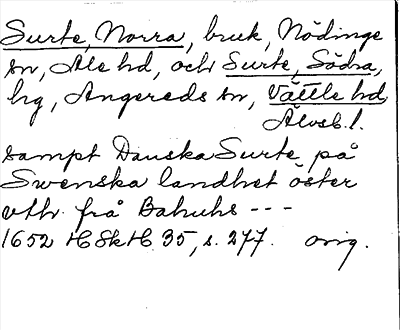 Surte, Norra, bruk, Nödinge
sn, Ale hd, och Surte, Södra,
hg, Angereds sn, Vättle hd,
Älvsb. l.
sampt Danska Surte på
Swenska landhet öster
vthr frå Bahuhs ---
1652 HSkH 35, s. 277. orig.